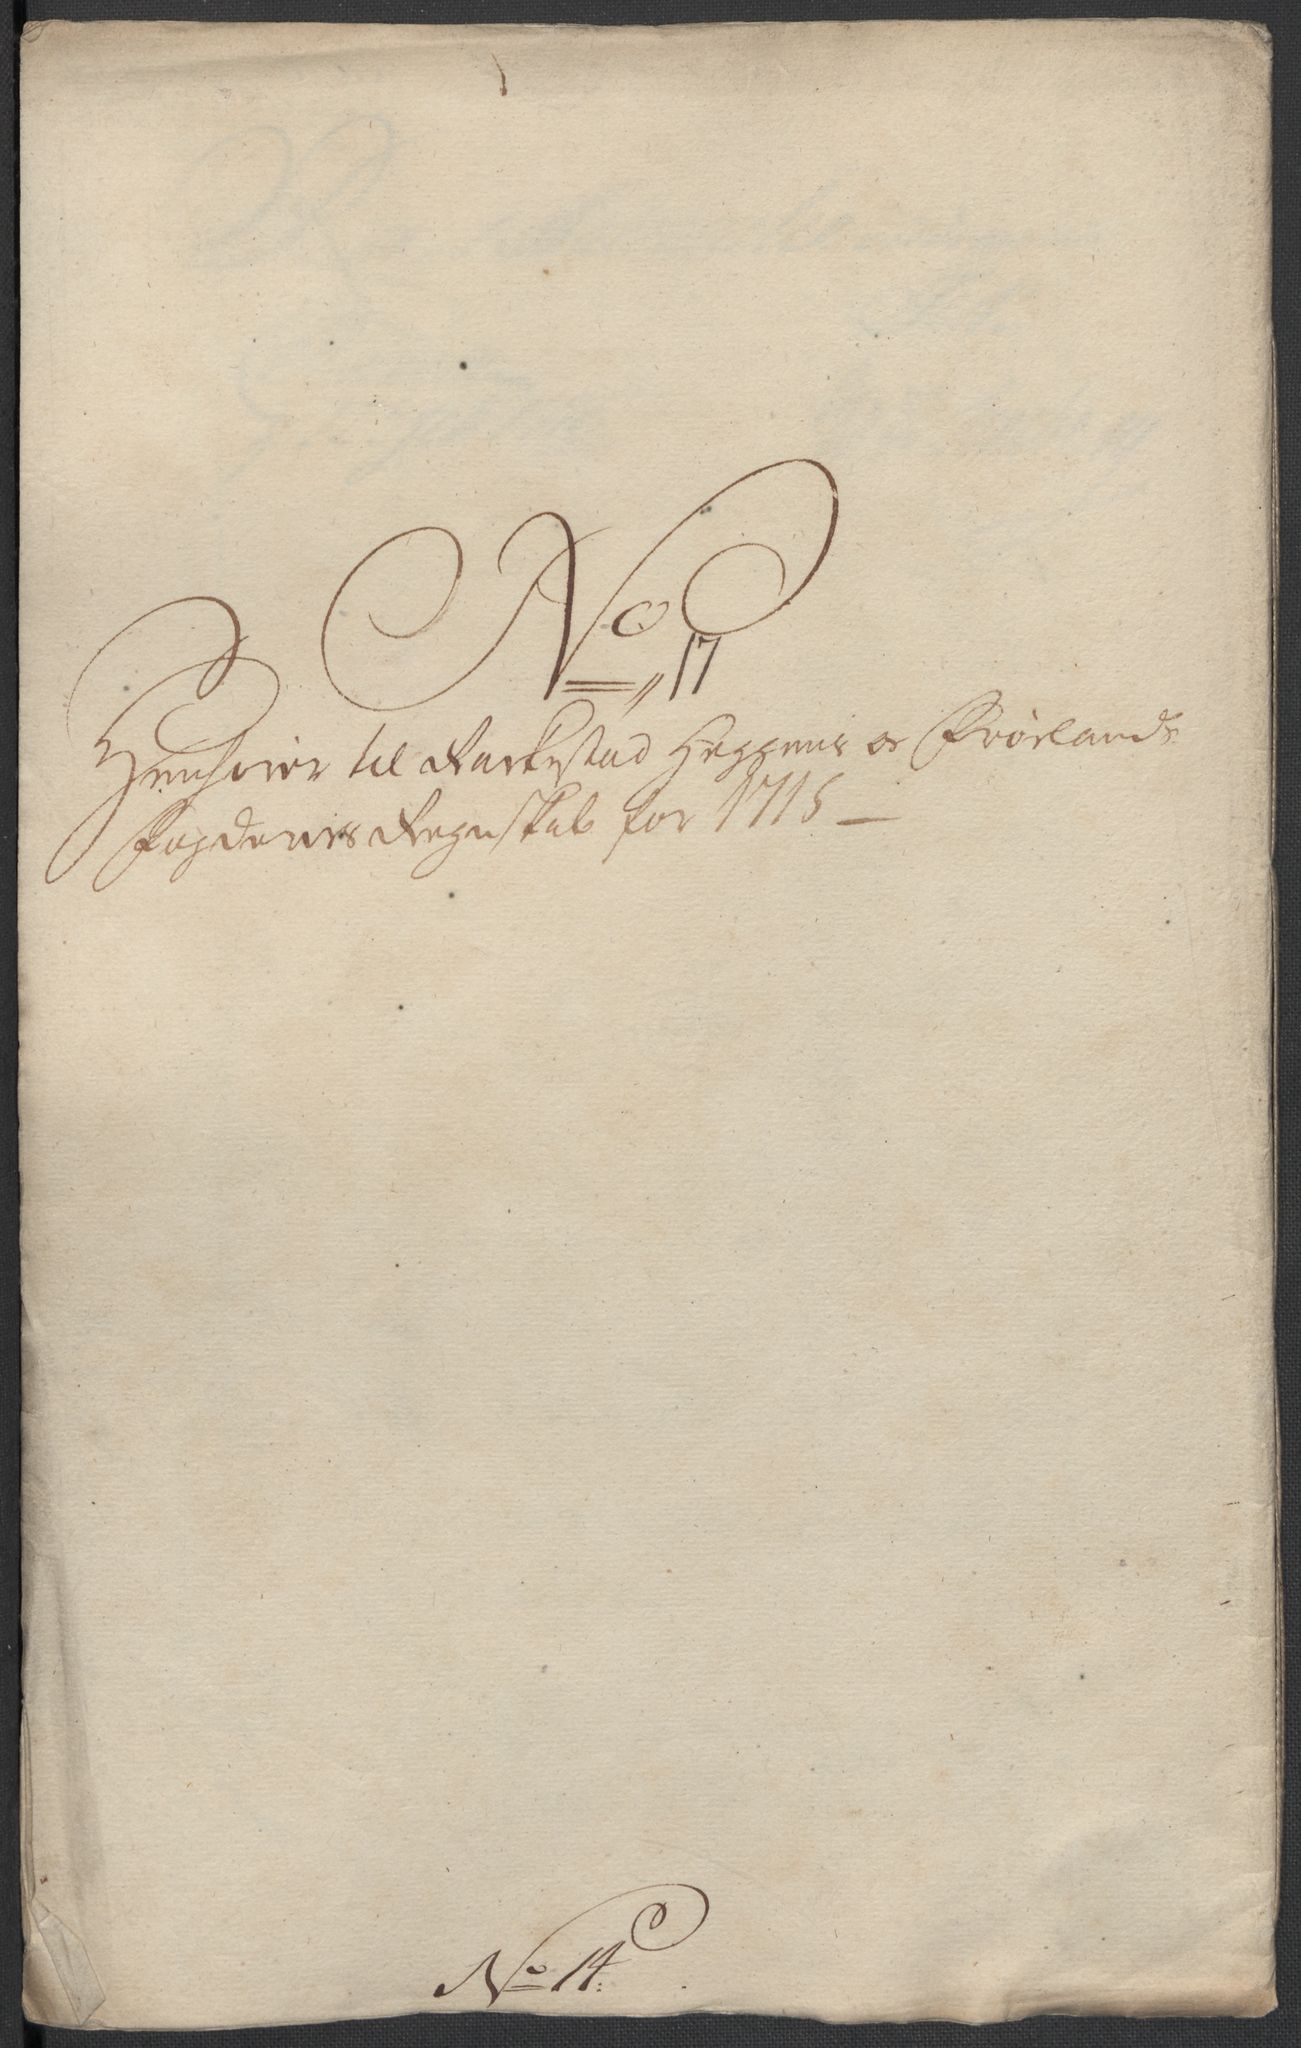 No 17
Henhører til Rackestad Heggens og Frølands
Fogderies Regnskab for 1715
No 14.